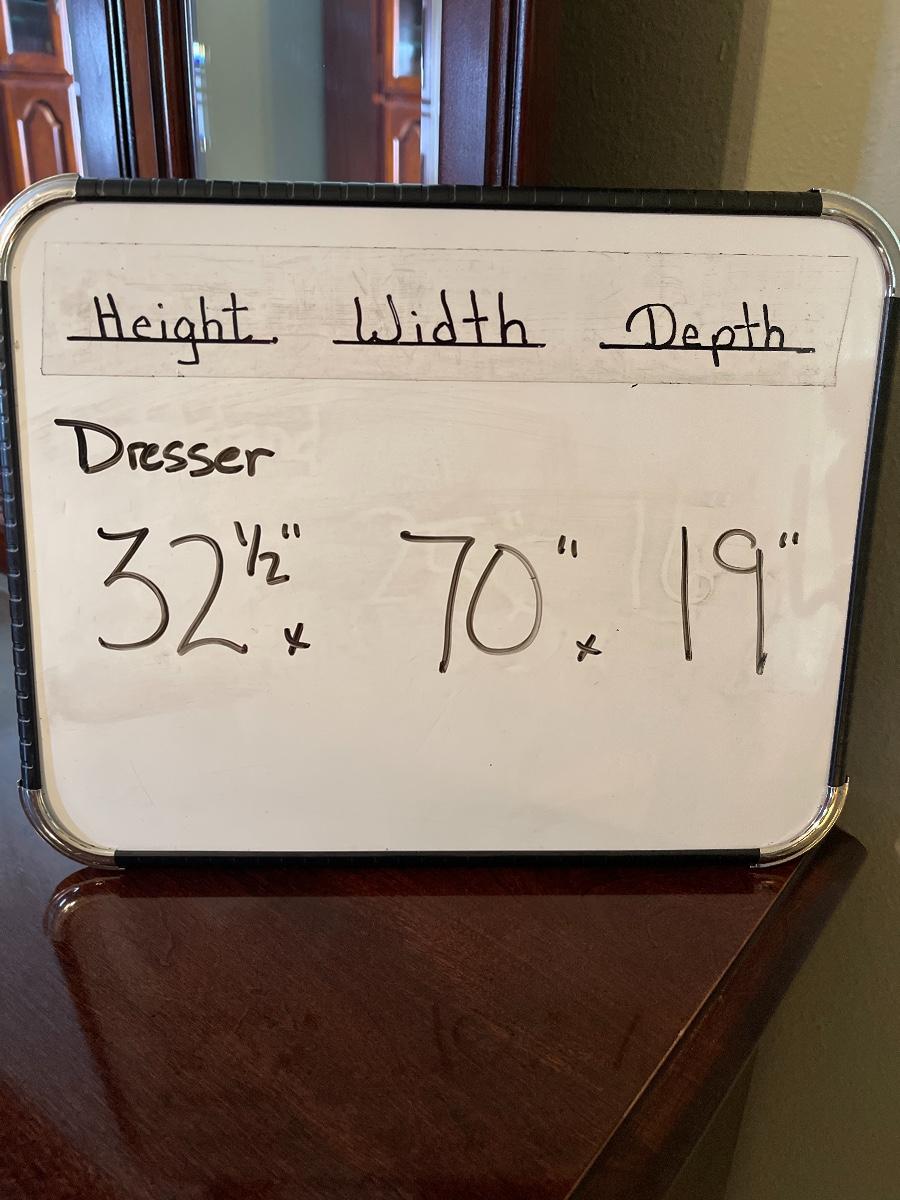 Height Width Depth
Dresser
32 1/2" x 70" x 19"